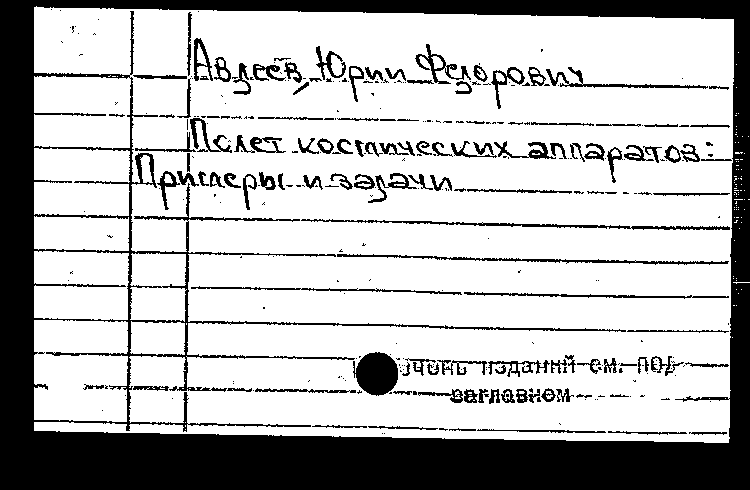 Авдеев, Юрий Федорович
Полет космических аппаратов:
Примеры и задачи
изданий см. под
заглавием